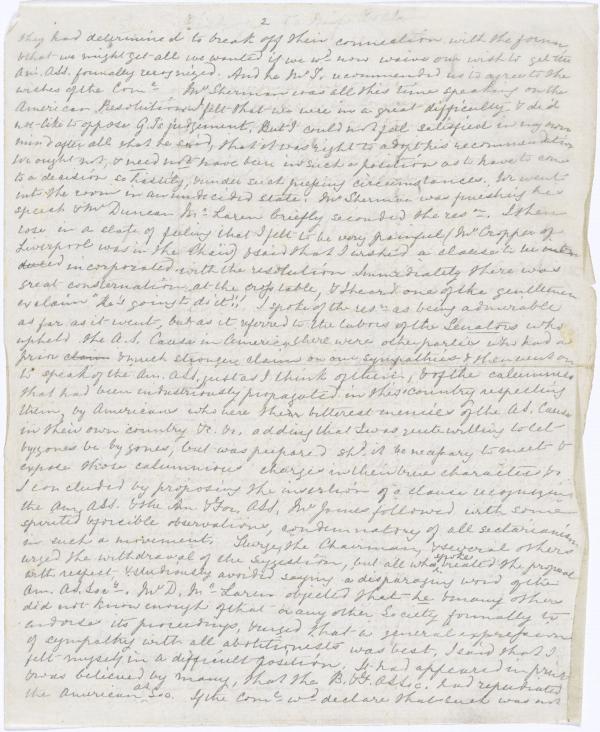 2
they had determined to break off their connection with the former
& that we might get all we wanted if we wd now waive our wish to get the
Am. Ass. formally recognized. And he Mr T. recommended us to agree to the
wishes of the Come. Mr Sherman was all this time speaking on the
American Resolution. I felt that we were in a great difficulty, & did
not like to oppose G. Ts judgement. But I could not feel satisfied in my own
mind after all what he said, that it was right to adopt his recommendation
We ought not, & need not have been in such a position as to have to come
to a decision so hastily, & under such pressing circumstances. We went
into the room in an undecided state. Mr Sherman was finishing his
speech & Mr Duncan McLaren briefly seconded the resn. I then
rose in a state of feeling that I felt to be very painful (Mr Cropper of
Liverpool was in the Chair) & said that I wished a clause to be
incorporated with the resolution. Immediately there was
great consternation at the cross table, & I heard one of the gentlemen
exclaim "he's going to do it"!! I spoke of the resn as being admirable
as far as it went, but as it referred to the labors of the Senators who
upheld the A.S. Cause in America, there were other parties who had a
prior claim & much stronger claim on our sympathies & then went on
to speak of the Am. ASS. just as I think of them, & of the calumnies
that had been industriously propagated in this country respecting
them, by Americans who were the bitterest enemies of the A.S. Cause
in their own country &c. &c. adding that I was quite willing to let
bygones be bygones, but was prepared shd. it be necessary to meet &
expose those calumnious charges in their true characters &
I concluded by proposing the insertion of a clause recognizing
the Am. ASS. & the Am. & For. ASS. Mr James followed with some
spirited & forcible observations, condemnatory of all sectarianism
in such a movement. Sturge, the Chairman, & several others
urged the withdrawal of the suggestion, but all who spoke treated the proposal
with respect & studiously avoided saying a disparaging word of the
Am. A.S. Socy. Mr D. McLaren objected that he & many others
did not know enough of that or any other Society formally to
endorse its proceedings, & urged that a general expression
of sympathy with all abolitionists was best. I said that I
felt myself in a difficult position. It had appeared in print
& was believed by many, that the B. & F. A.S. Soc. had repudiated
the American AS Soc. If the Come. wd declare that such was not